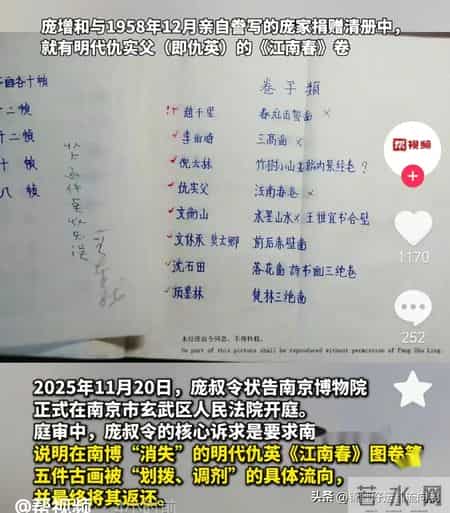 庞增和与1958年12月亲自誊写的庞家捐赠清册中，
就有明代仇实父（即仇英）的《江南春》卷
卷子類
赵千里
李伯時 三高图 ×
倪云林
仇实父 江南春卷 ×
文衡山 水墨山水× 王雅宜书合璧
文休承 前后赤壁图
沈石田 落花图 詩书画三绝卷
项墨林 梵林三绝图
十二幀
十二幀
十幀
八幀
未经作者令同意，不得转载。
No part of this picture shall be reproduced without permission of Pang Shu Ling.
视频
1170
252
2025年11月20日，庞叔令状告南京博物院
正式在南京市玄武区人民法院开庭。
庭审中，庞叔令的核心诉求是要求南
说明在南博“消失”的明代仇英《江南春》图卷等
五件古画被“划拨、调剂”的具体流向，
并最终将其返还。
@帮视频
头条
若水网